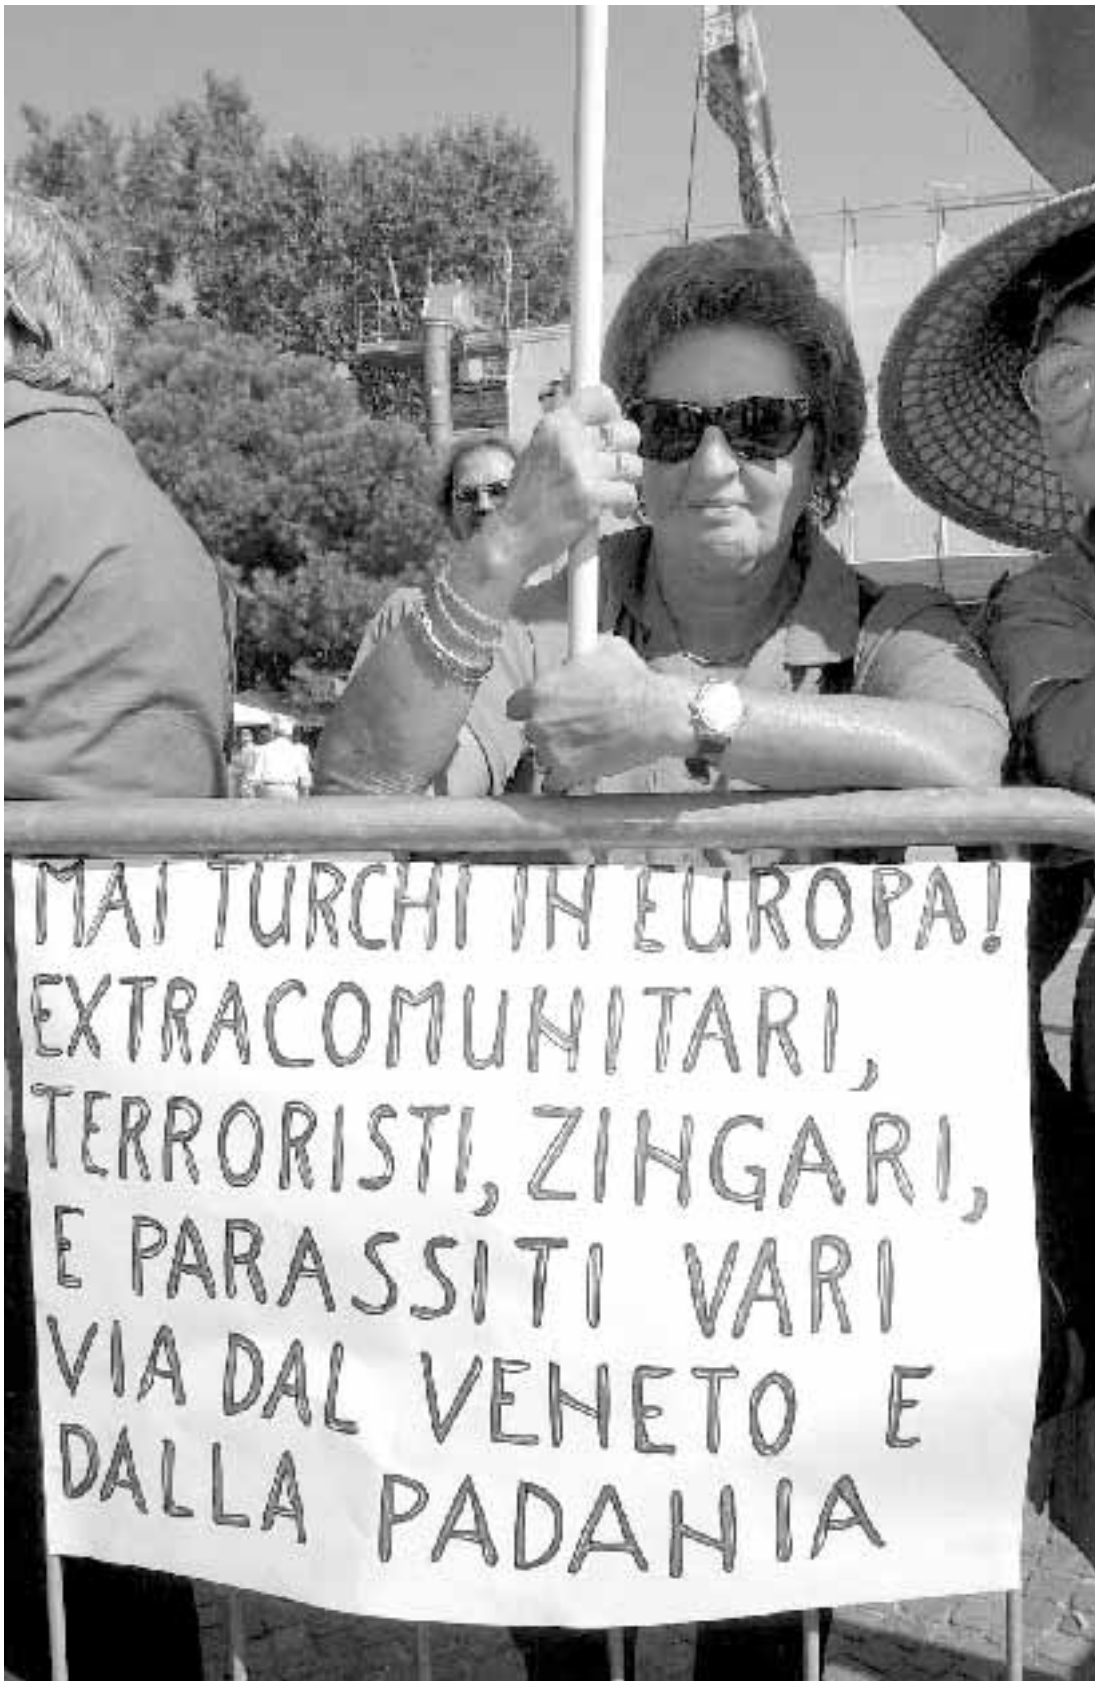 MAI TURCHI IN EUROPA!
EXTRACOMUNITARI,
TERRORISTI, ZINGARI,
E PARASSITI VARI
VIA DAL VENETO E
DALLA PADANIA